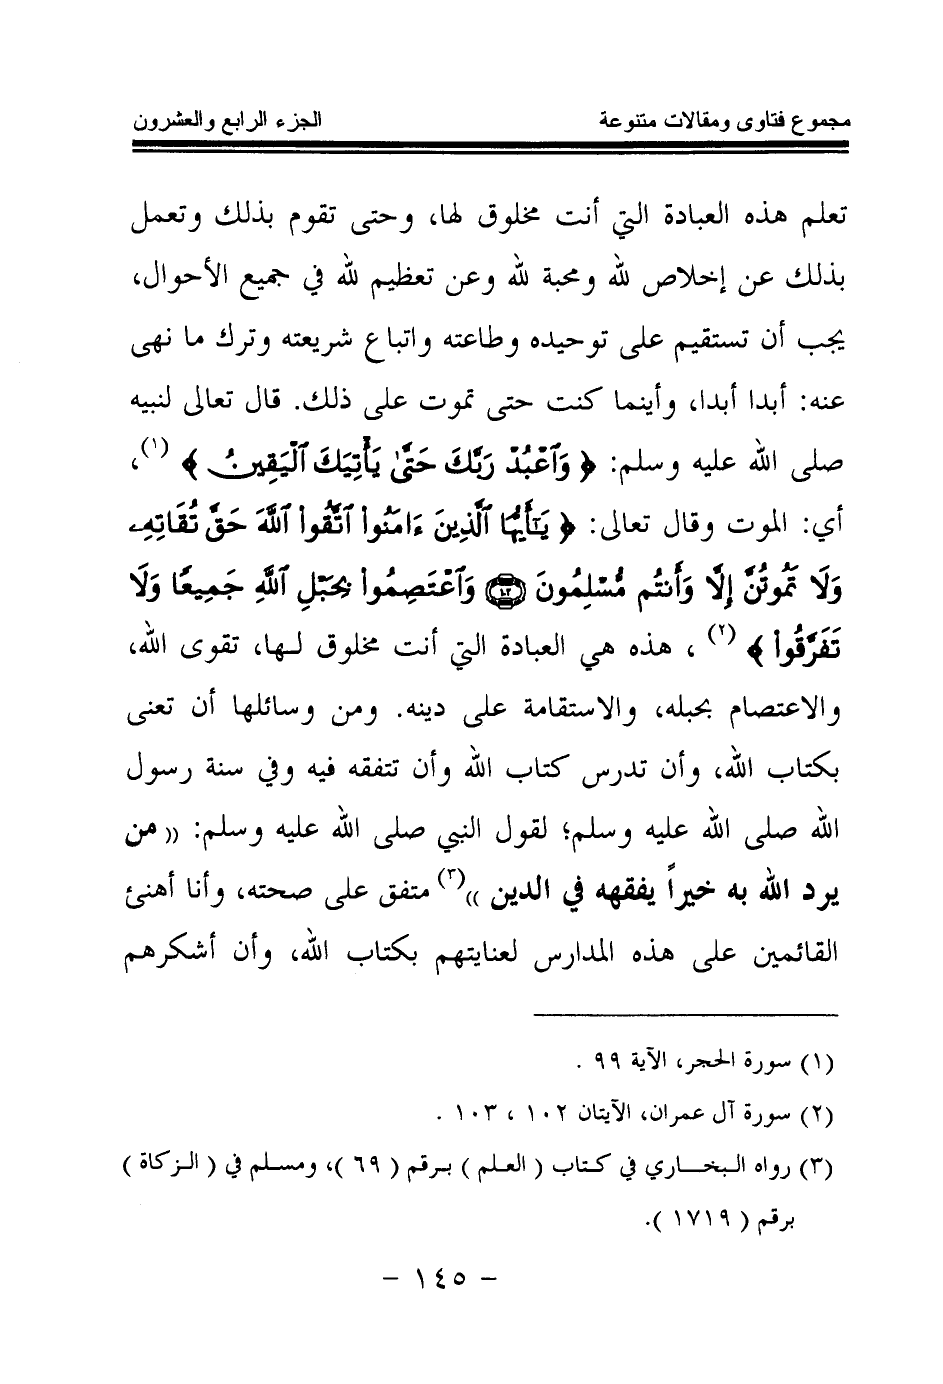 مجموع فتاوى ومقالات متنوعة الجزء الرابع والعشرون
تعلم هذه العبادة التي أنت مخلوق لها، وحتى تقوم بذلك وتعمل
بذلك عن إخلاص لله ومحبة لله وعن تعظيم لله في جميع الأحوال،
يجب أن تستقيم على توحيده وطاعته واتباع شريعته وترك ما نهى
عنه: أبدا أبدا، وأينما كنت حتى تموت على ذلك. قال تعالى لنبيه
صلى الله عليه وسلم: ﴿ وَٱعْبُدْ رَبَّكَ حَتَّىٰ يَأْتِيَكَ ٱلْيَقِينُ ﴾ (١)،
أي: الموت وقال تعالى: ﴿ يَٰٓأَيُّهَا ٱلَّذِينَ ءَامَنُوا۟ ٱتَّقُوا۟ ٱللَّهَ حَقَّ تُقَاتِهِۦ
وَلَا تَمُوتُنَّ إِلَّا وَأَنتُم مُّسْلِمُونَ ١٠٢ وَٱعْتَصِمُوا۟ بِحَبْلِ ٱللَّهِ جَمِيعًا وَلَا
تَفَرَّقُوا۟ ﴾ (٢) ، هذه هي العبادة التي أنت مخلوق لـها، تقوى الله،
والاعتصام بحبله، والاستقامة على دينه. ومن وسائلها أن تعنى
بكتاب الله، وأن تدرس كتاب الله وأن تتفقه فيه وفي سنة رسول
الله صلى الله عليه وسلم؛ لقول النبي صلى الله عليه وسلم: (( من
يرد الله به خيراً يفقهه في الدين ))(٣) متفق على صحته، وأنا أهنئ
القائمين على هذه المدارس لعنايتهم بكتاب الله، وأن أشكرهم
(١) سورة الحجر، الآية ٩٩ .
(٢) سورة آل عمران، الآيتان ١٠٢ ، ١٠٣ .
(٣) رواه البخاري في كتاب ( العلم ) برقم ( ٦٩ )، ومسلم في ( الزكاة )
برقم ( ١٧١٩ ).
- ١٤٥ -